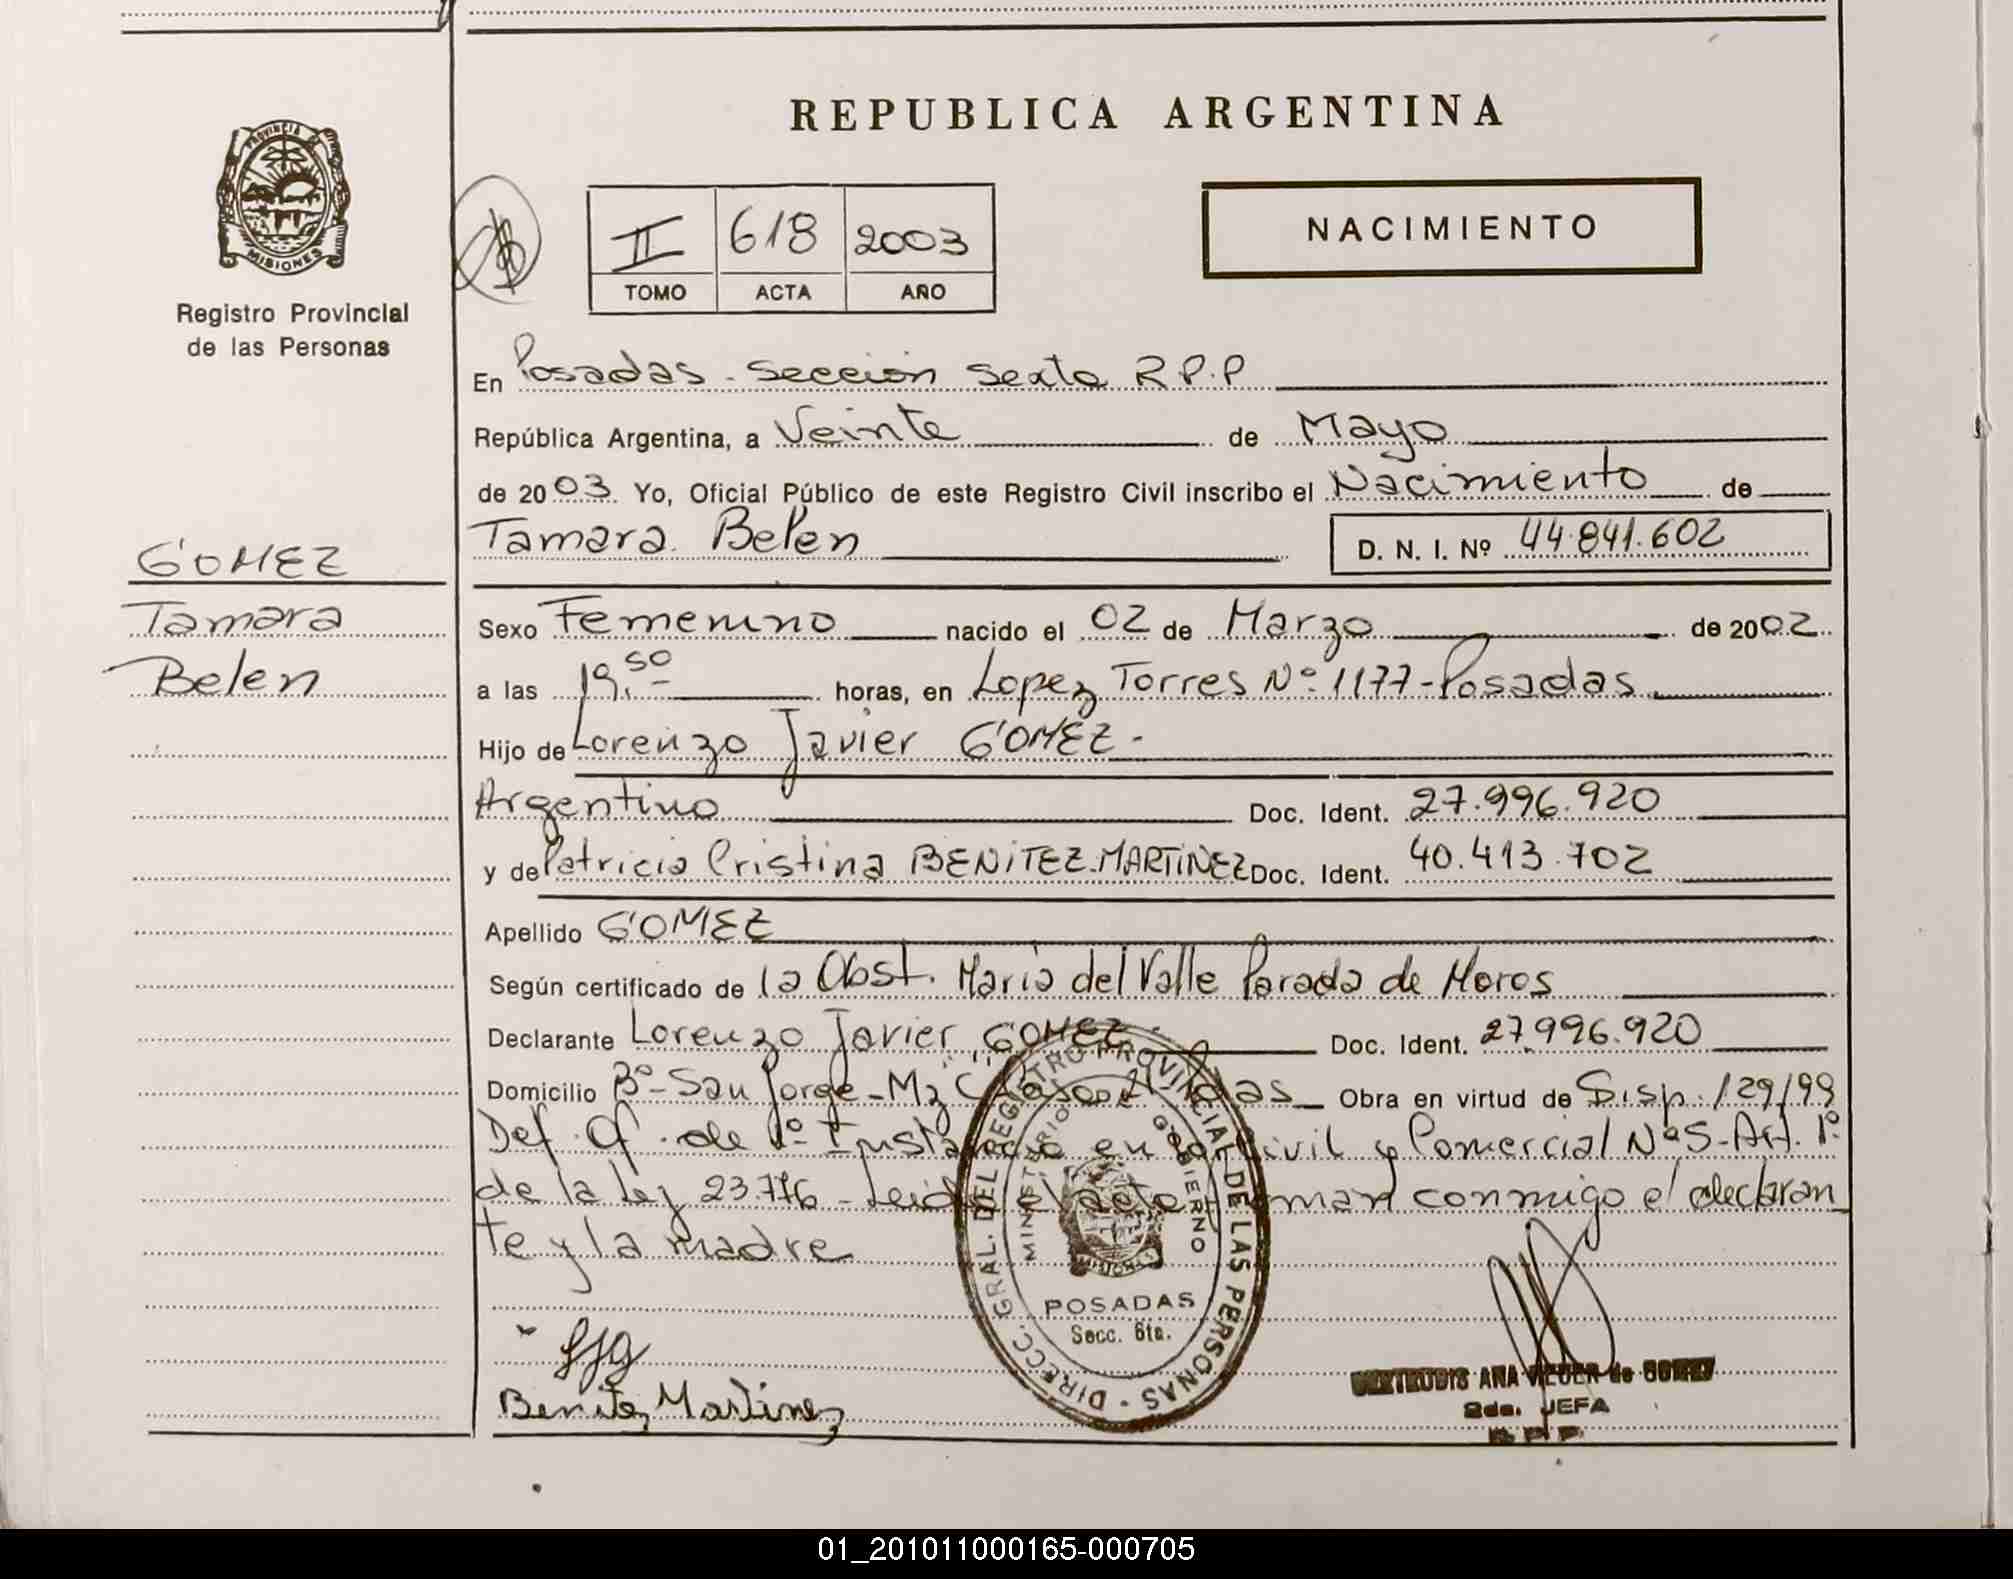 REPUBLICA ARGENTINA
PROVINCIA
MISIONES
Registro Provincial
de las Personas
II 618 2003
TOMO ACTA AÑO
NACIMIENTO
En Posadas - Sección Sexta R.P.P
República Argentina, a Veinte de Mayo
de 2003 Yo, Oficial Público de este Registro Civil inscribo el Nacimiento de
Tamara Belen D. N. I. Nº 44.841.602
GOMEZ
Tamara
Belen
Sexo Femenino nacido el 02 de Marzo de 2002
a las 19.50 horas, en Lopez Torres Nº 1177 - Posadas
Hijo de Lorenzo Javier GOMEZ -
Argentino Doc. Ident. 27.996.920
y de Patricia Cristina BENITEZ-MARTINEZ Doc. Ident. 40.413.702
Apellido GOMEZ
Según certificado de la Obst. Maria del Valle Parada de Moros
Declarante Lorenzo Javier GOMEZ - Doc. Ident. 27.996.920
Domicilio Bº - San Jorge - Mz C Obra en virtud de Disp. 129/99
Def. Of. de 1º Instancia en lo Civil y Comercial Nº 5 - Art. 1º
de la Ley 23.776 - Leida el acta firman conmigo el declaran
te y la madre
DIRECC. GRAL. DEL REGISTRO PROVINCIAL DE LAS PERSONAS
MINISTERIO GOBIERNO
POSADAS
Secc. 6ta.
Benitez Martinez
ANA de GOMEZ
2da. JEFA
R P P
01_201011000165-000705